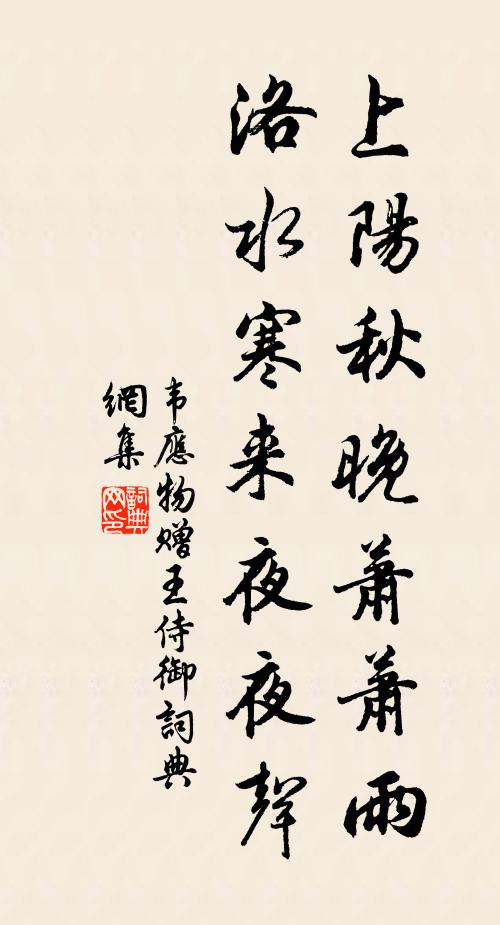 上陽秋晚蕭蕭雨
洛水寒来夜夜聲
韦應物赠王侍御詞典
網集
詞典
网印